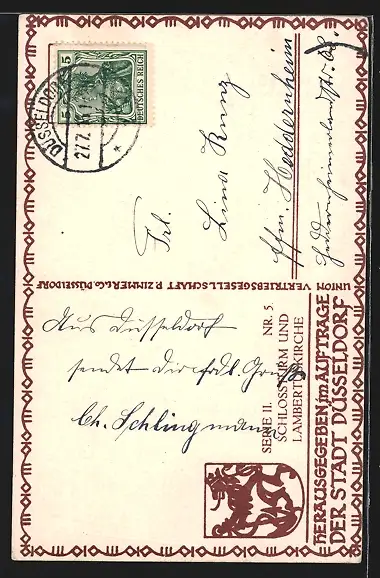 DÜSSELDORF
27.7.
5 5
DEUTSCHES REICH
Frl.
Lina Kunz
Ffm Heddernheim
UNION VERTRIEBSGESELLSCHAFT P. ZIMMER & Co. DÜSSELDORF
Aus Düsseldorf
sendet die frdl. Grüße
Ch. Schlingmann
SERIE II. NR. 5.
SCHLOSSTURM UND
LAMBERTUSKIRCHE
HERAUSGEGEBEN im AUFTRAGE
DER STADT DÜSSELDORF